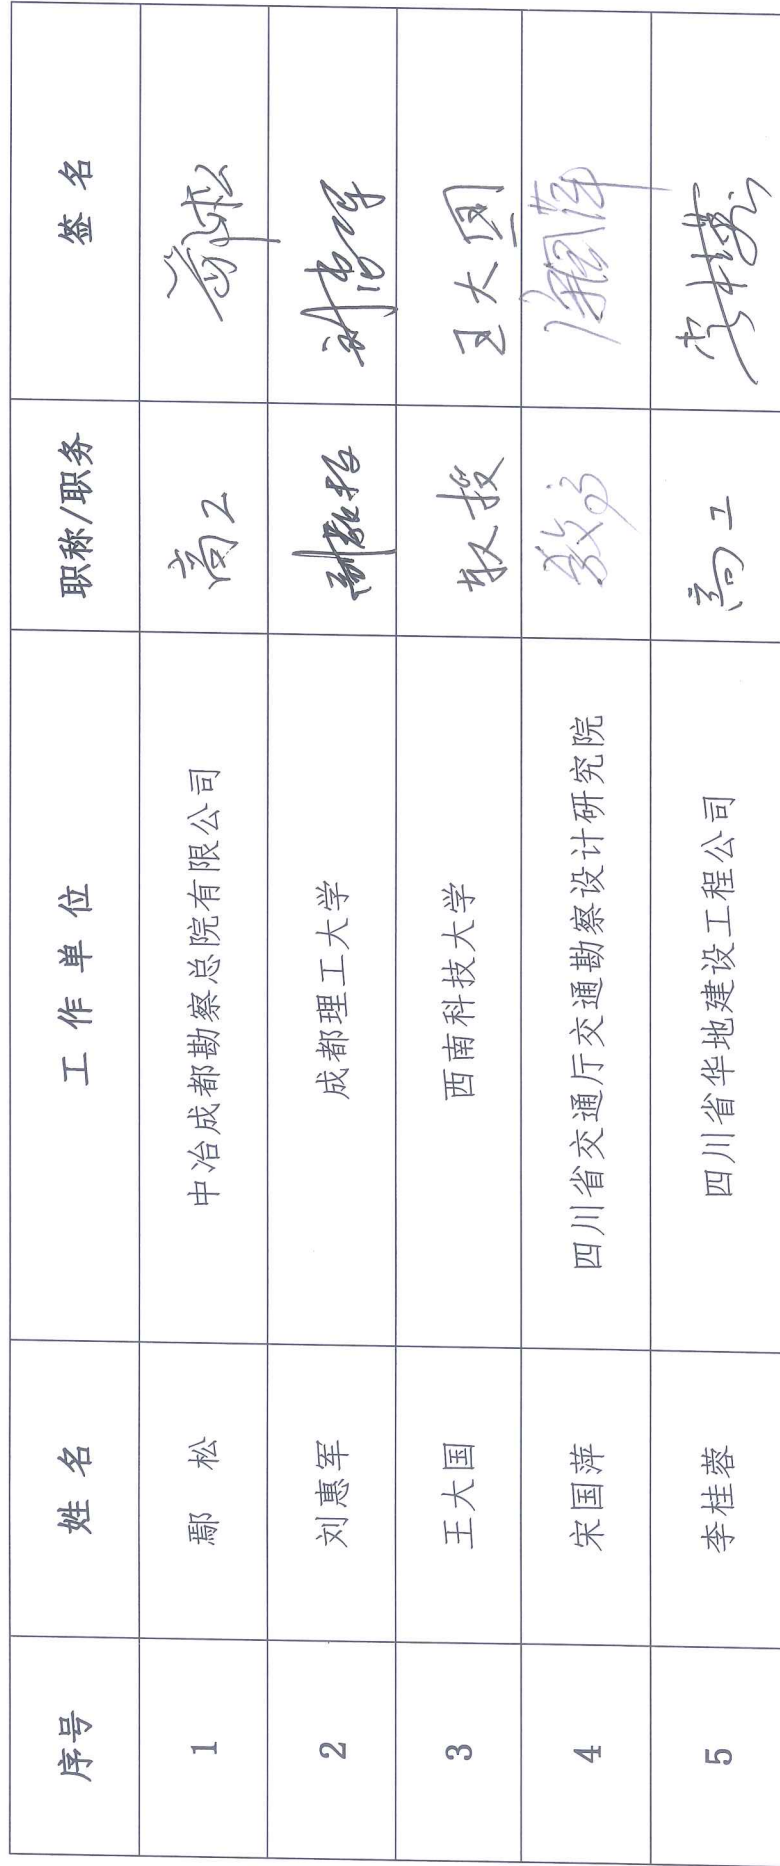 序号 姓名 工作单位 职称/职务 签名
1 鄢松 中冶成都勘察总院有限公司 高工 鄢松
2 刘惠军 成都理工大学 副教授 刘惠军
3 王大国 西南科技大学 教授 王大国
4 宋国萍 四川省交通厅交通勘察设计研究院 教高
5 李桂蓉 四川省华地建设工程公司 高工 李桂蓉